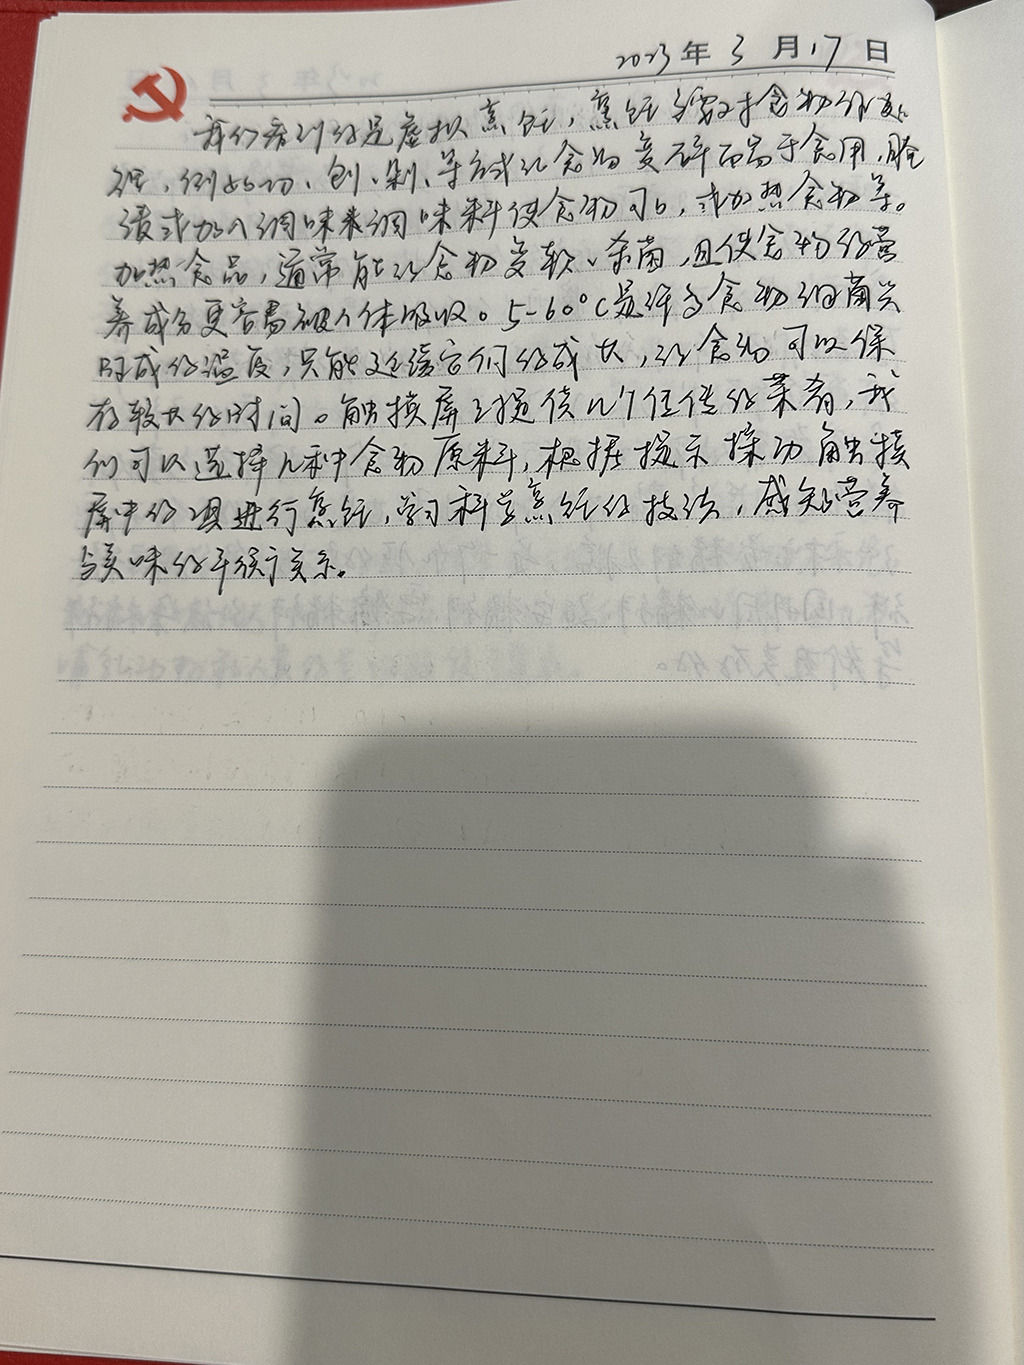 2023年3月17日
我们看到的是虚拟烹饪,烹饪需要对食物作处
理,例如切、刨、剁、等方式让食物变碎而易于食用,腌
渍或加入调味来调味料使食物可口,或加热食物等。
加热食品,通常能让食物变软、杀菌,且使食物的营
养成分更容易被人体吸收。5-60°C是许多食物细菌兴
的温度,只能延缓它们的成长,让食物可以保
存较长的时间。触摸屏提供几个任选的菜肴,我
们可以选择几种食物原料,根据提示操功触摸
屏中的具进行烹饪,学习科学烹饪的技法,感知营养
与美味的平衡关系。